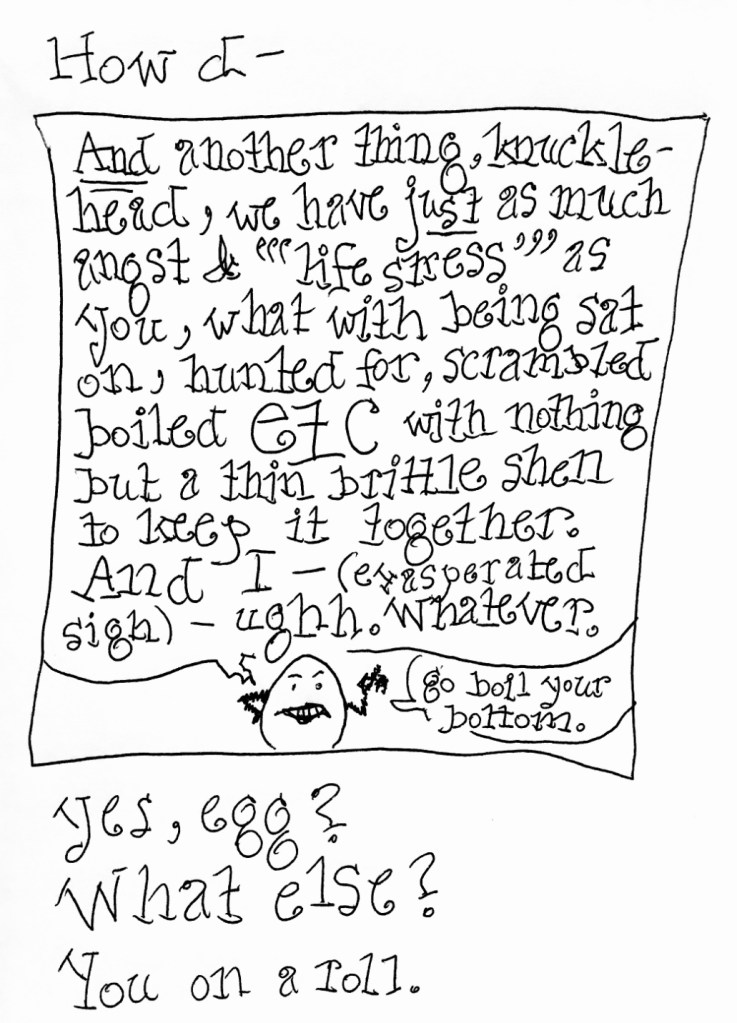 How d-
And another thing, knuckle-
head, we have just as much
angst & "“life stress”" as
you, what with being sat
on, hunted for, scrambled
boiled ETC with nothing
but a thin brittle shell
to keep it together.
And I - (exasperated
sigh) - ughh. Whatever.
go boil your
bottom.
Yes, egg?
What else?
You on a roll.